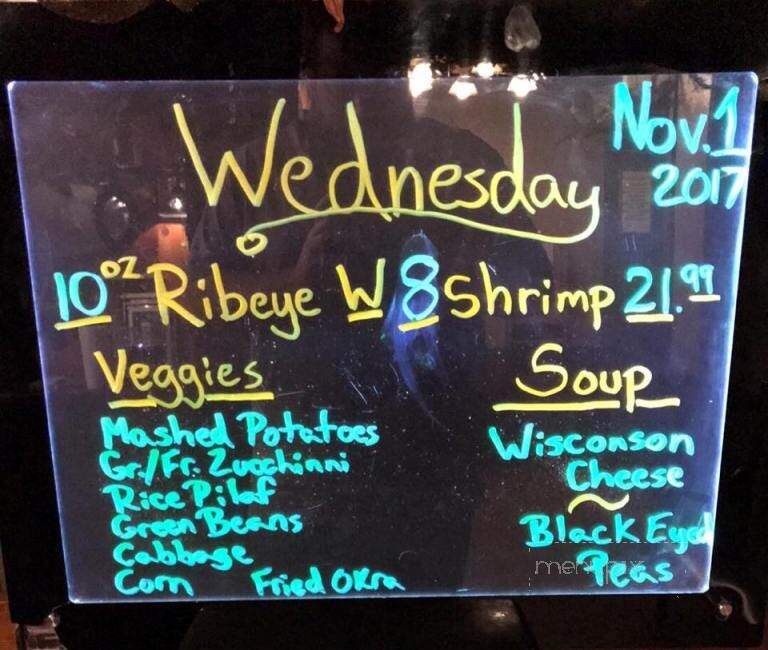 Wednesday
Nov. 1
2017
10 oz Ribeye W 8 Shrimp 21.99
Veggies
Mashed Potatoes
Gr./Fr. Zucchinni
Rice Pilaf
Green Beans
Cabbage
Corn Fried Okra
Soup
Wisconson
Cheese
~
Black Eyed
Peas